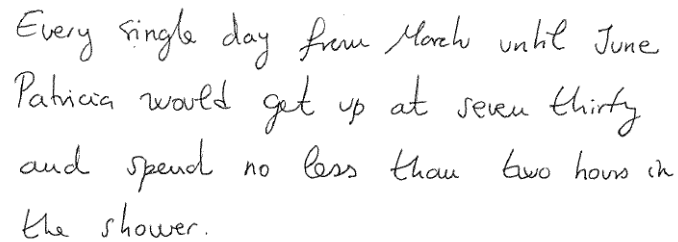 Every single day from March until June
Patricia would get up at seven thirty
and spend no less than two hours in
the shower.